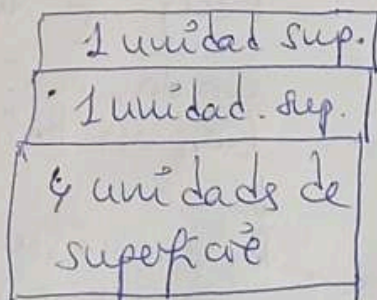 1 unidad sup.
1 unidad. sup.
4 unidads de
superficie